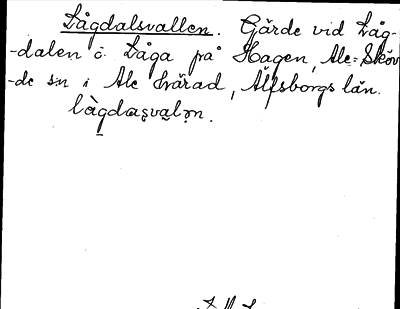 Lågdalsvallen. Gärde vid Låg-
-dalen o. Låga på Hagen, Ale-Sköv
-de s:n i Ale härad, Älfsborgs län.
làgdaṣvalṇ.